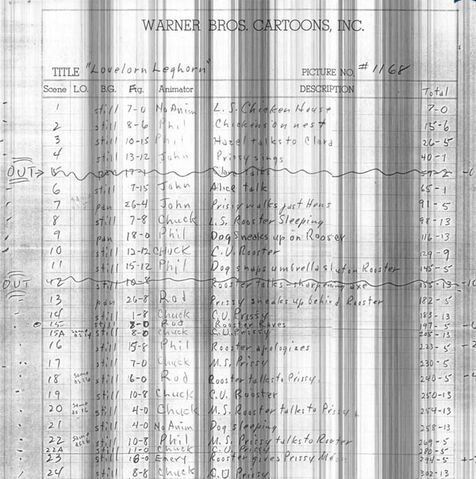 WARNER BROS. CARTOONS, INC.
TITLE "Lovelorn Leghorn" PICTURE NO. #1168
Scene L.O. B.G. Fig. Animator DESCRIPTION Total
1 still 7-0 No Anim L.S. Chicken House 7-0
2 still 8-6 Phil Chickens on nest 15-6
3 still 10-15 Phil Hazel talks to Clara 26-5
4 still 13-12 John Prissy sings 40-1
OUT
6 still 7-15 John Alice talk 65-1
7 pan 26-4 John Prissy walks past Hens 91-5
8 still 7-8 Chuck L.S. Rooster Sleeping 98-13
9 pan 18-0 Phil Dog Sneaks up on Rooster 116-13
10 still 12-12 Chuck C.U. Rooster 129-9
11 still 15-12 Phil Dog snaps umbrella shut on Rooster 145-5
OUT 12 still 10-8 Rooster talks sharpening axe 155-13
13 pan 26-8 Rod Prissy sneaks up behind Rooster 182-5
14 still 1-8 Chuck C.U. Prissy 183-13
15 still 8-0 Rod Rooster Raves 197-5
15A still 8-0 Chuck C.U. Prissy 205-13
16 still 15-8 Phil Rooster apologizes 223-5
17 still 7-0 Chuck M.S. Prissy 230-5
18 still 6-0 Rod Rooster talks to Prissy 240-5
19 still 10-8 Chuck C.U. Rooster 250-13
20 still 4-0 Chuck M.S. Rooster talks to Prissy 254-13
21 still 4-0 No Anim Dog sleeping 258-13
22 still 10-8 Phil M.S. Prissy talks to Rooster 269-5
22A still 11-0 Chuck C.U. Prissy 280-5
23 still Emery Rooster gives Prissy
24 still 8-8 Chuck C.U. Prissy 302-13